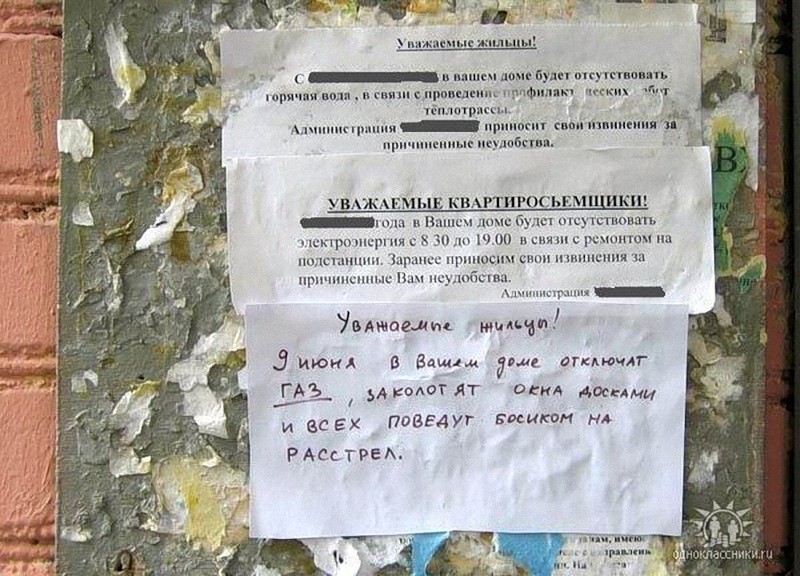 Уважаемые жильцы!
С в вашем доме будет отсутствовать
горячая вода , в связи с проведение профилакт ческих
тёплотрассы.
Администрация приносит свои извинения за
причиненные неудобства.
УВАЖАЕМЫЕ КВАРТИРОСЬЕМЩИКИ!
года в Вашем доме будет отсутствовать
электроэнергия с 8 30 до 19.00 в связи с ремонтом на
подстанции. Заранее приносим свои извинения за
причиненные Вам неудобства.
Администрация
Уважаемые жильцы!
9 июня в Вашем доме отключат
ГАЗ , заколотят окна досками
и всех поведут босиком на
расстрел.
одноклассники.ru